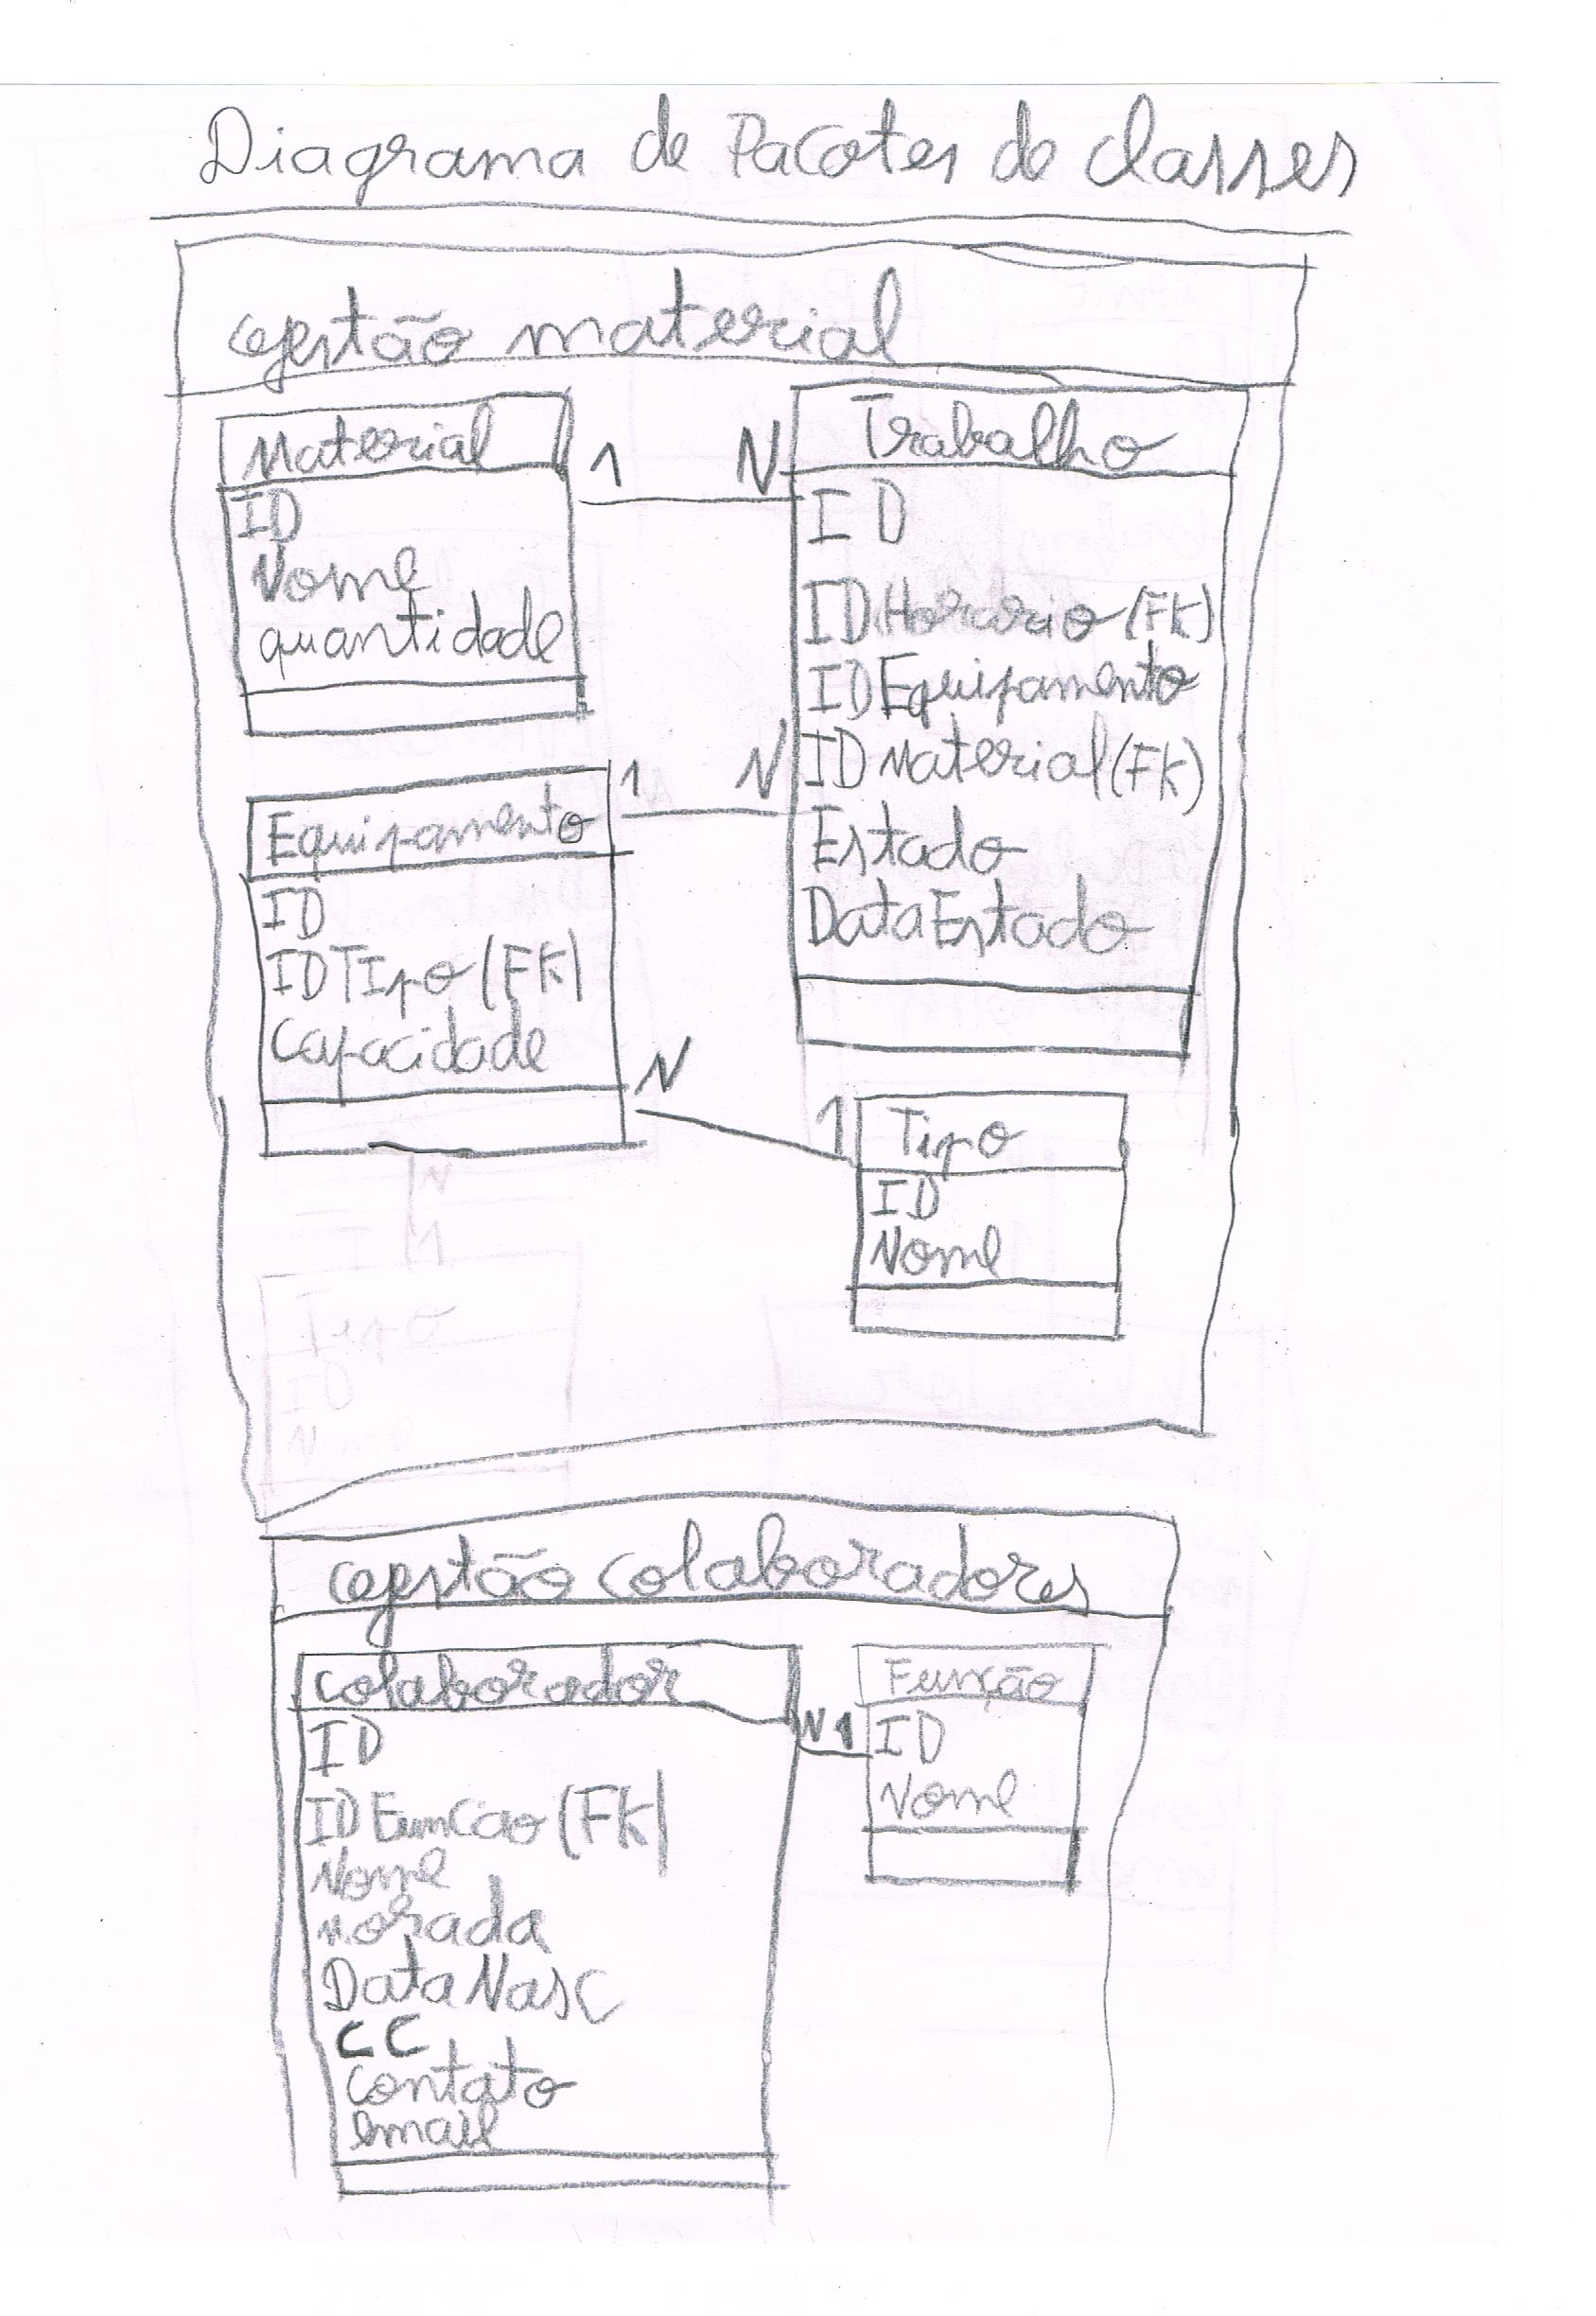 Diagrama de Pacotes de classes
Gestão material
Material
ID
Nome
quantidade
1 N
Trabalho
ID
IDHorario (FK)
IDEquipamento
IDMaterial (FK)
Estado
DataEstado
1 N
Equipamento
ID
IDTIpo (FK)
Capacidade
N 1
Tipo
ID
Nome
Gestão colaboradores
Colaborador
ID
IDFuncao (FK)
Nome
Morada
DataNasc
CC
Contato
email
N 1
Função
ID
Nome